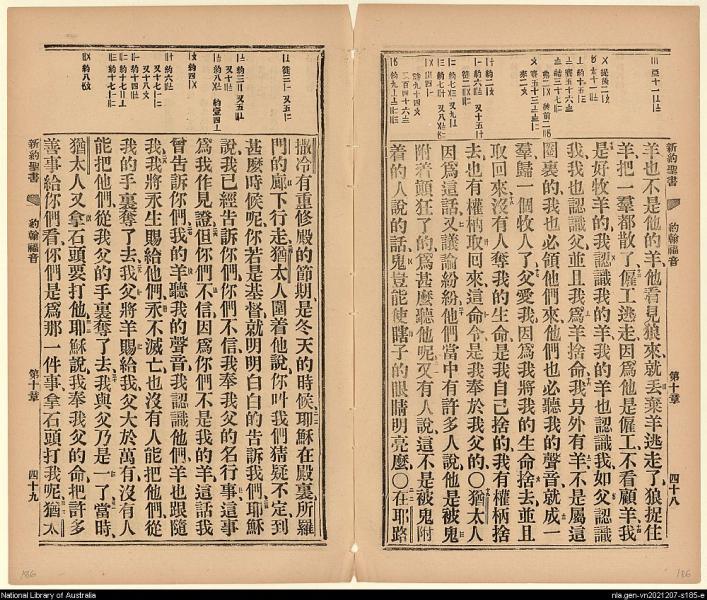 新約聖書
約翰福音
第十章
四十八
羊也不是他的羊他看見狼來就丢棄羊逃走了狼捉住
羊把一羣都散了僱工逃走因爲他是僱工不看顧羊我
是好牧羊的我認識我的羊我的羊也認識我如父認識
我我也認識父並且我爲羊捨命我另外有羊不是屬這
圈裏的我也必領他們來他們也必聽我的聲音就成一
羣歸一個牧人了父愛我因爲我將我的生命捨去並且
取回來沒有人奪我的生命是我自己捨的我有權柄捨
去也有權柄取回來這命令是我奉於我父的〇猶太人
因爲這話又議論紛紛他們當中有許多人說他是被鬼
附着顛狂了的爲甚麼聽他呢又有人說這不是被鬼附
着的人說的話鬼豈能使瞎子的眼睛明亮麼〇在耶路
撒冷有重修殿的節期是冬天的時候耶穌在殿裏所羅
門的廊下行走猶太人圍着他說你叫我們猜疑不定到
甚麼時候呢你若是基督就明明白白的告訴我們耶穌
說我已經告訴你們你們不信我奉我父的名行事這事
爲我作見證但你們不信因爲你們不是我的羊這話我
曾告訴你們我的羊聽我的聲音我認識他們羊也跟隨
我我將永生賜給他們永不滅亡也沒有人能把他們從
我的手裏奪了去我父將羊賜給我父大於萬有沒有人
能把他們從我父的手裏奪了去我與父乃是一了當時
猶太人又拿石頭要打他耶穌說我奉我父的命把許多
善事給你們看你們是爲那一件事拿石頭打我呢猶太
新約聖書
約翰福音
第十章
四十九
186
186
National Library of Australia
nla.gen-vn2021207-s185-e